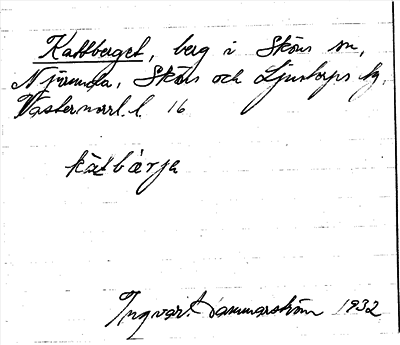 Kattberget, berg i Sköns sn,
Njurunda, Sköns och Ljustorps tg,
Västernorrl. l. 16
kat̀bárja
Ingvar Hammarström 1932